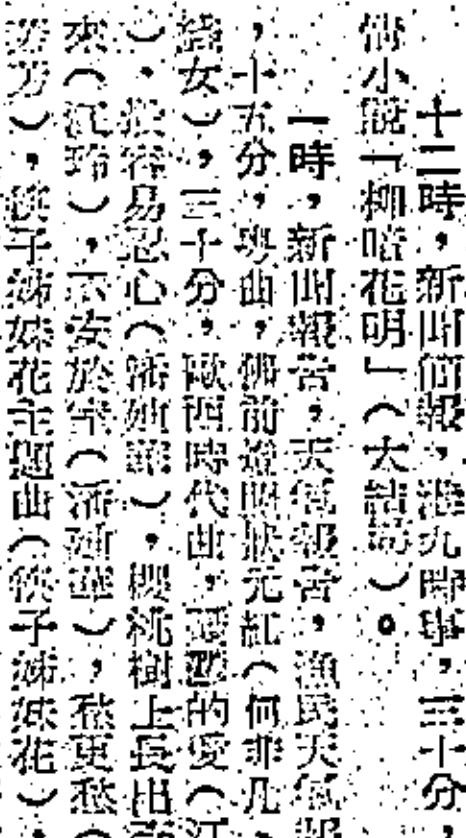 十二時，新聞簡報，港九時事，三十分，
小說「柳暗花明」（大結局）。
一時，新聞報告，天氣報告，漁民天氣報
，十五分，粵曲，佛前燈照狀元紅（何非凡、
女），三十分，歐西時代曲，愛的愛（江
），很容易忍心（潘迪華），櫻桃樹上長出
來（江玲），不安於室（潘迪華），愁更愁（
芳），筷子姊妹花主題曲（筷子姊妹花）